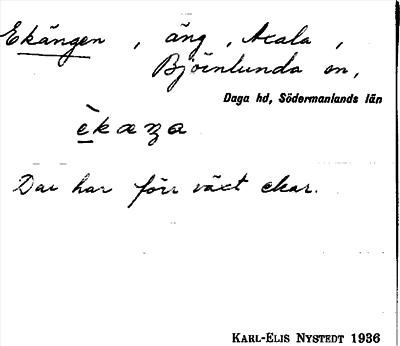 Ekängen, äng, Acala,
Björnlunda sn,
Daga hd, Södermanlands län
Där har förr växt ekar.
KARL-ELIS NYSTEDT 1936